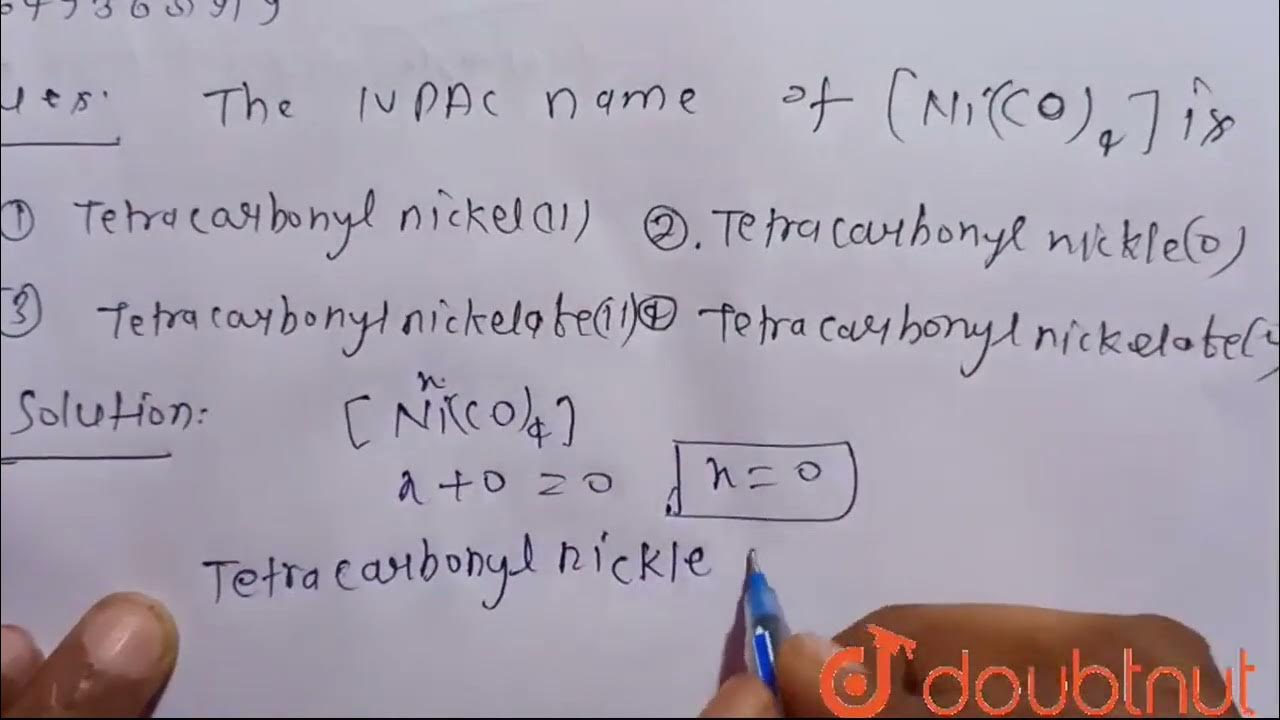 The IUPAC name of [Ni(CO)4] is
① Tetracarbonyl nickel(II) ②. Tetracarbonyl nickle(0)
③ Tetracarbonylnickelate(II) ④ Tetracarbonylnickelate(
Solution: [Ni(CO)4]
x
x + 0 = 0 x = 0
Tetracarbonyl nickle
doubtnut